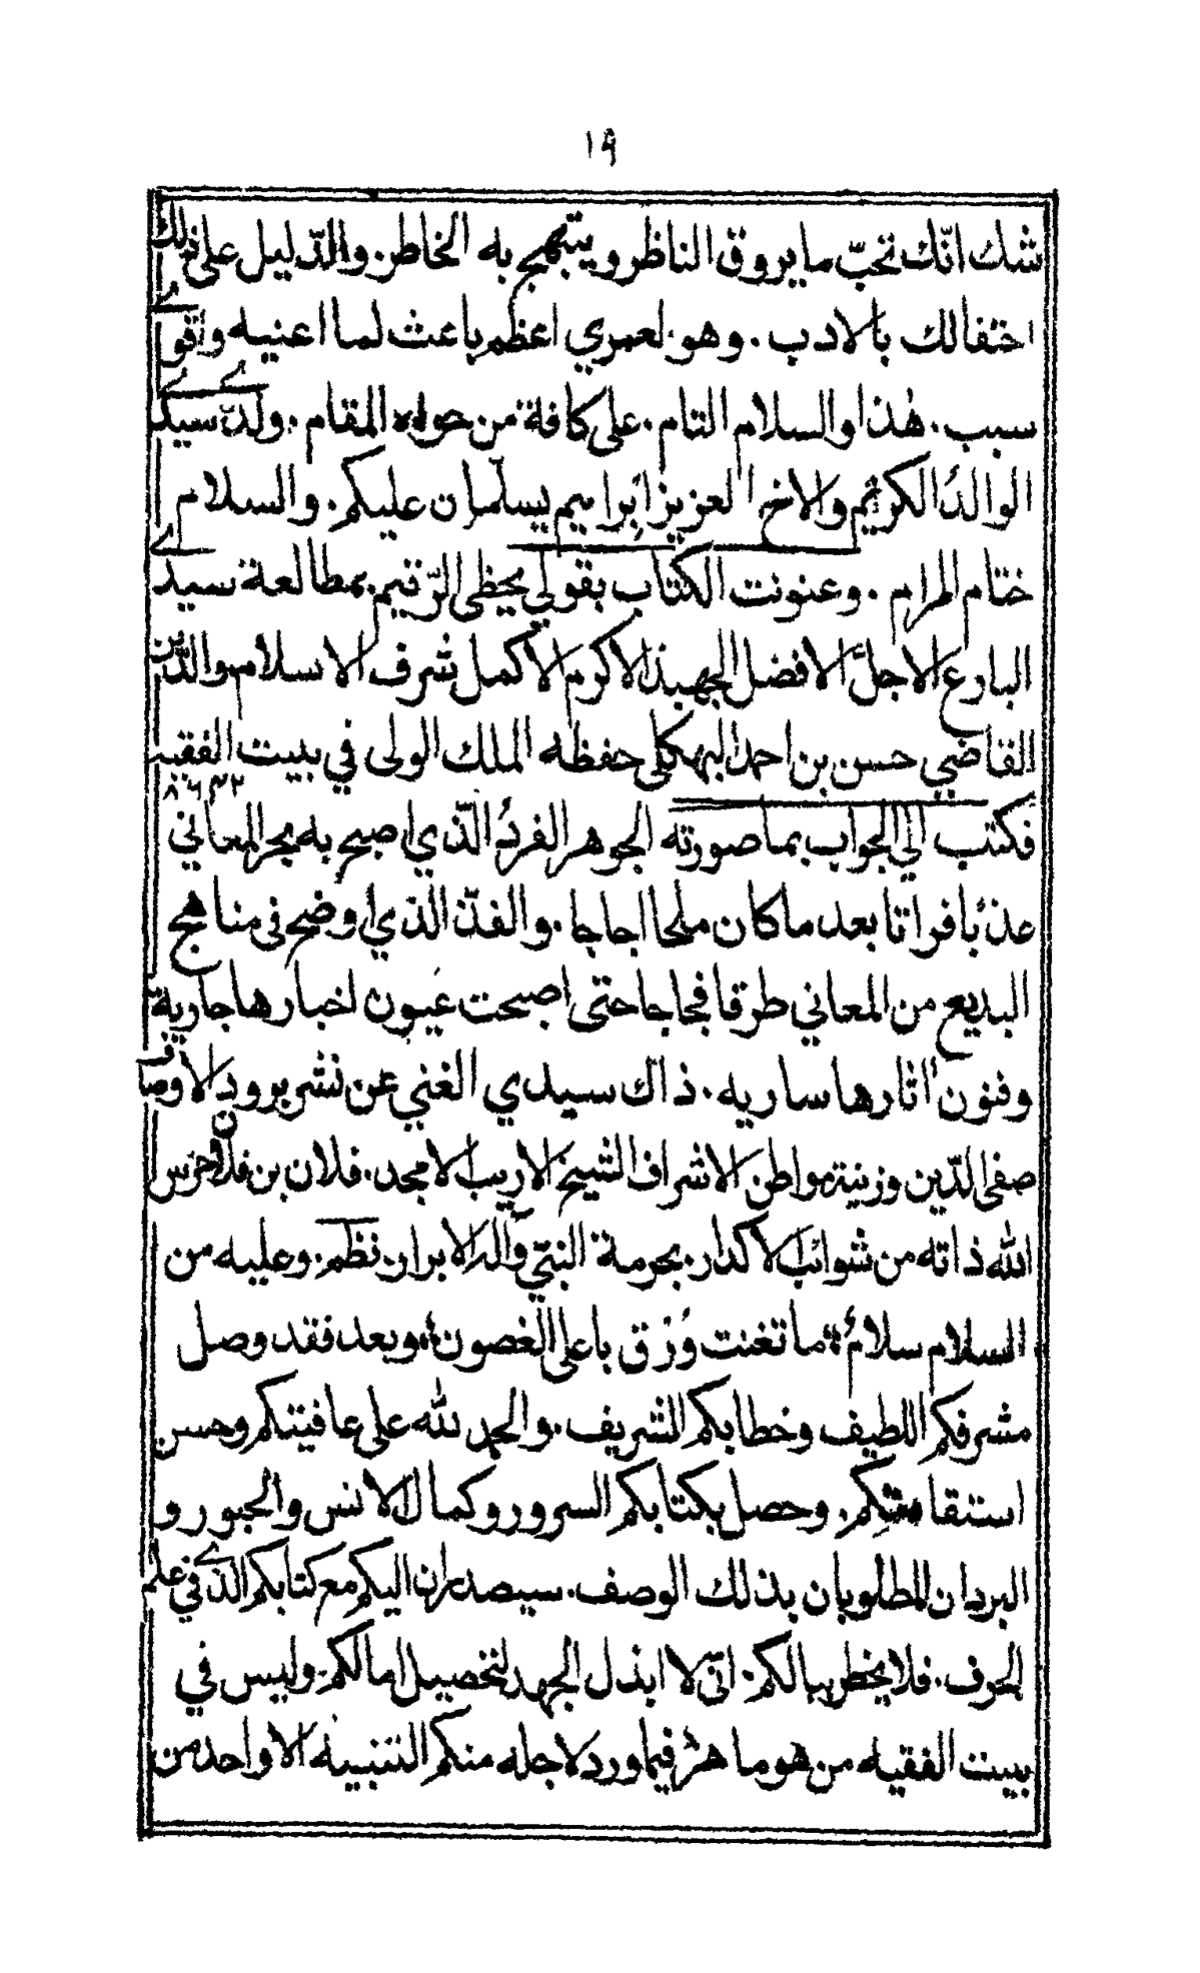 ١٩
شك انّك تحبّ ما يروق الناظر ويبتهج به الخاطر. والدّليل على ذلك
احتفالك بالادب. وهو لعمري اعظم باعث لما اعنيه واقوى
سبب. هٰذا والسلام التام. على كافة من حواه المقام. ولديّ سيدي
الوالدُ الكريم والاخ العزيز ابراهيم يسلّمان عليكم. والسلام
ختام المرام. وعنونت الكتاب بقولي يحظى الرّقيم. بمطالعة سيدي
البارع الاجلّ الافضل الجهبذ الاكرم الاكمل شرف الاسلام والدّين
القاضي حسن بن احمد البهكلى حفظه الملك الولى في بيت الفقيه
٨٦٤٢
فكتب الي الجواب بما صورته الجوهر الفردُ الّذي اصبح به بحر المعاني
عذبًا فراتا بعد ما كان ملحا اجاجا. والفذّ الذي اوضح في مناهج
البديع من المعاني طرقا فجاجا حتى اصبحت عيون اخبارها جارية
وفنون اٰثارها ساريه. ذاك سيدي الغني عن نشر برود الاوصاف
صفى الدّين وزينة مواطن الاشراف الشيخ الاريب الامجد. فلان بن فلان حرس
الله ذاته من شوائب الاكدار. بحرمة النبيّ وآله الابرار. نظم. وعليه من
السلام سلامٌ ؛ ما تغنت وُرْق باعلى الغصون ؛ وبعد فقد وصل
مشرفكم اللطيف وخطابكم الشريف. والحمد لله على عافيتكم وحسن
استقامتكم. وحصل بكتابكم السرور وكمال الانس والحبور و
البردان المطلوبان بذلك الوصف. سيصدران اليكم مع كتابكم الذي في علم
الحرف. فلا يخطر ببالكم. انّى لا ابذل الجهد لتحصيل امالكم. وليس في
بيت الفقيه من هو ماهرٌ فيما ورد لاجله منكم التنبيه الا واحد من